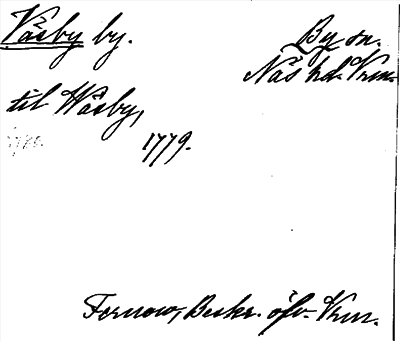 Väsby by. By sn.
Näs hd. Vrm.
til Wäsby,
1779.
Fernow, Beskr. öfv. Vrm.